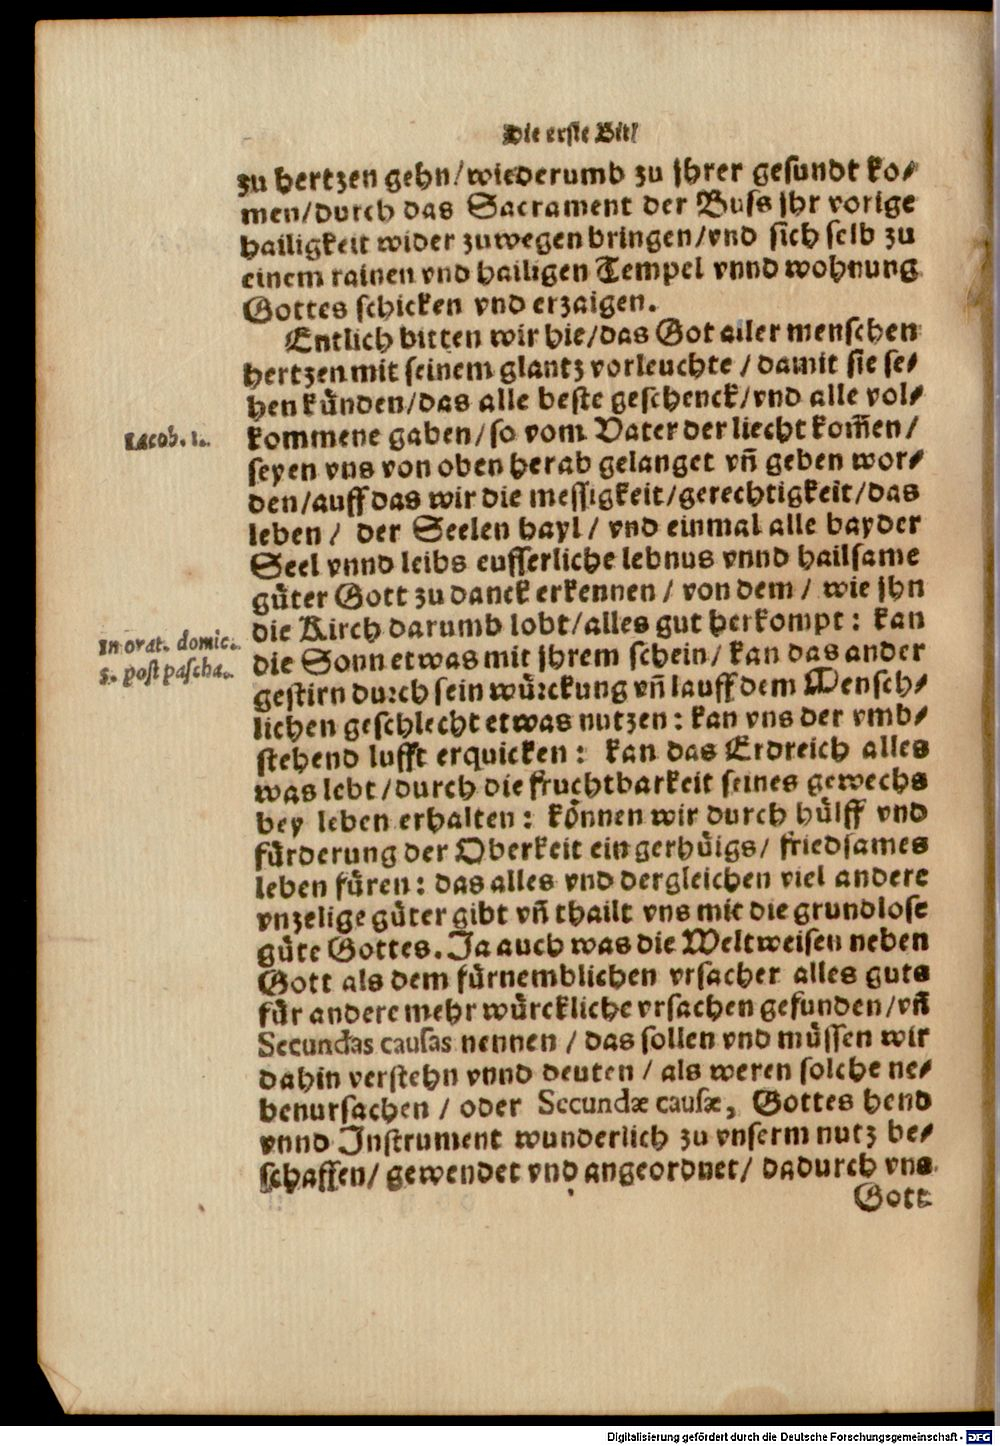 Die erste Bitt
zu hertzen gehn/wiederumb zu jhrer gesundt ko⸗
men/durch das Sacrament der Buss jhr vorige
hailigkeit wider zuwegen bringen/vnd sich selb zu
einem rainen vnd hailigen Tempel vnnd wohnung
Gottes schicken vnd erzaigen.
Entlich bitten wir hie/das Got aller menschen
hertzen mit seinem glantz vorleuchte / damit sie se⸗
hen künden/das alle beste geschenck/vnd alle vol⸗
Iacob. 1.
kommene gaben/so vom Vater der liecht kom̃en/
seyen vns von oben herab gelanget vñ geben wor⸗
den/auff das wir die messigkeit/gerechtigkeit/das
leben / der Seelen hayl / vnd einmal alle bayder
Seel vnnd leibs eusserliche lebnus vnnd hailsame
güter Gott zu danck erkennen / von dem / wie jhn
In orat. domic.
5. post pascha.
die Kirch darumb lobt/alles gut herkompt: kan
die Sonn etwas mit jhrem schein/ kan das ander
gestirn durch sein würckung vñ lauff dem Mensch⸗
lichen geschlecht etwas nutzen: kan vns der vmb⸗
stehend lufft erquicken: kan das Erdreich alles
was lebt/durch die fruchtbarkeit seines gewechs
bey leben erhalten: können wir durch hülff vnd
fürderung der Oberkeit ein gerhüigs/ friedsames
leben füren: das alles vnd dergleichen viel andere
vnzelige güter gibt vñ thailt vns mit die grundlose
güte Gottes. Ja auch was die Weltweisen neben
Gott als dem fürnemblichen vrsacher alles guts
für andere mehr würckliche vrsachen gefunden/vñ
Secundas causas nennen / das sollen vnd müssen wir
dahin verstehn vnnd deuten / als weren solche ne⸗
benursachen / oder Secundæ causæ, Gottes hend
vnnd Instrument wunderlich zu vnserm nutz be⸗
schaffen/ gewendet vnd angeordnet/ dadurch vns
Gott
Digitalisierung gefördert durch die Deutsche Forschungsgemeinschaft - DFG